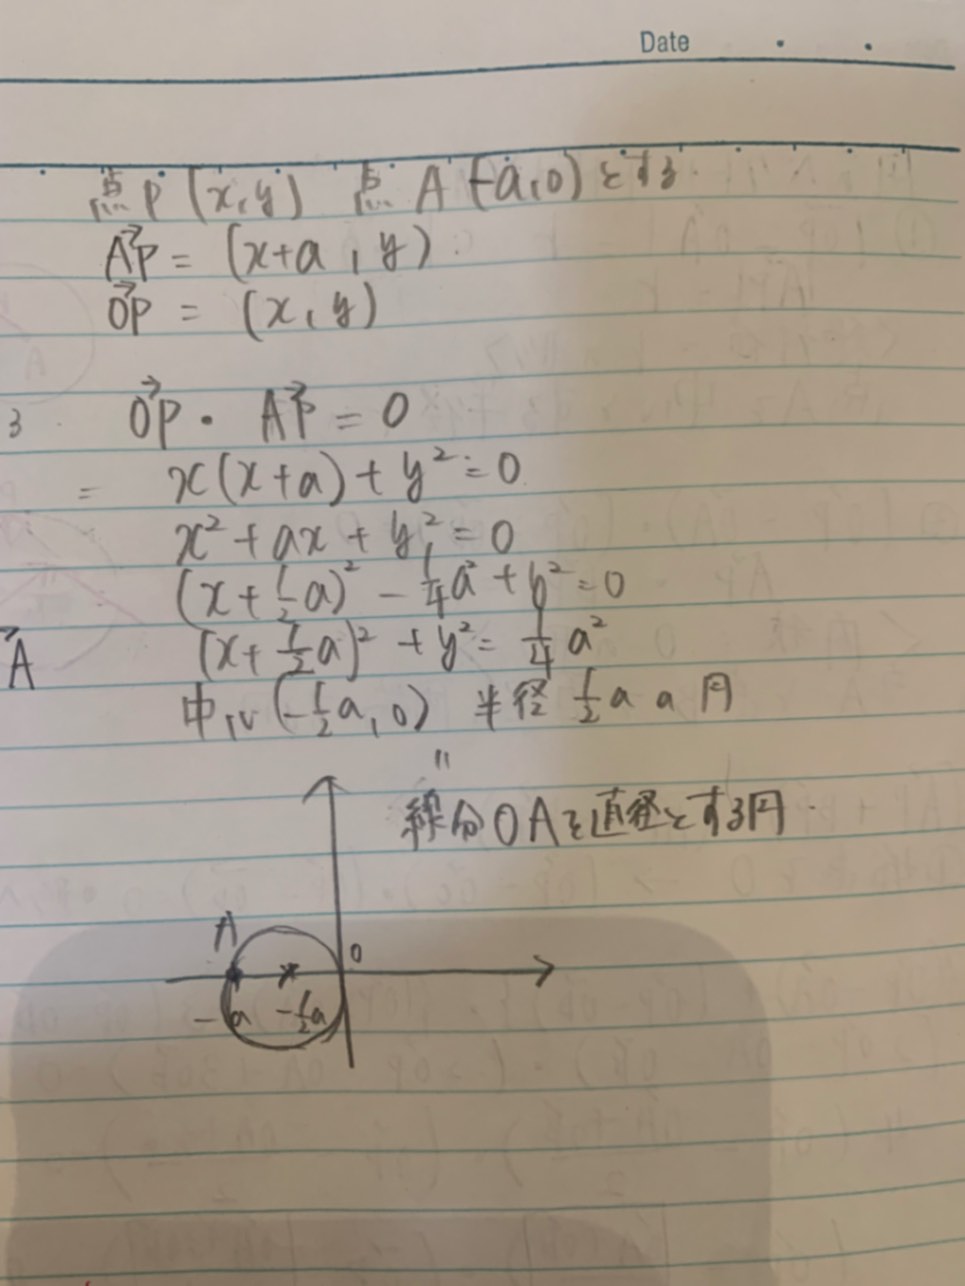 Date
点P (x,y) 点A (-a,0)とする
AP→ = (x+a, y)
OP→ = (x, y)
3 OP→・AP→ = 0
= x(x+a)+y²=0
x²+ax+y²=0
(x+½a)²-¼a²+y²=0
A→ (x+½a)²+y²=¼a²
中心(-½a,0) 半径½aa円
"
線分OAを直径とする円
A
0
-a -½a